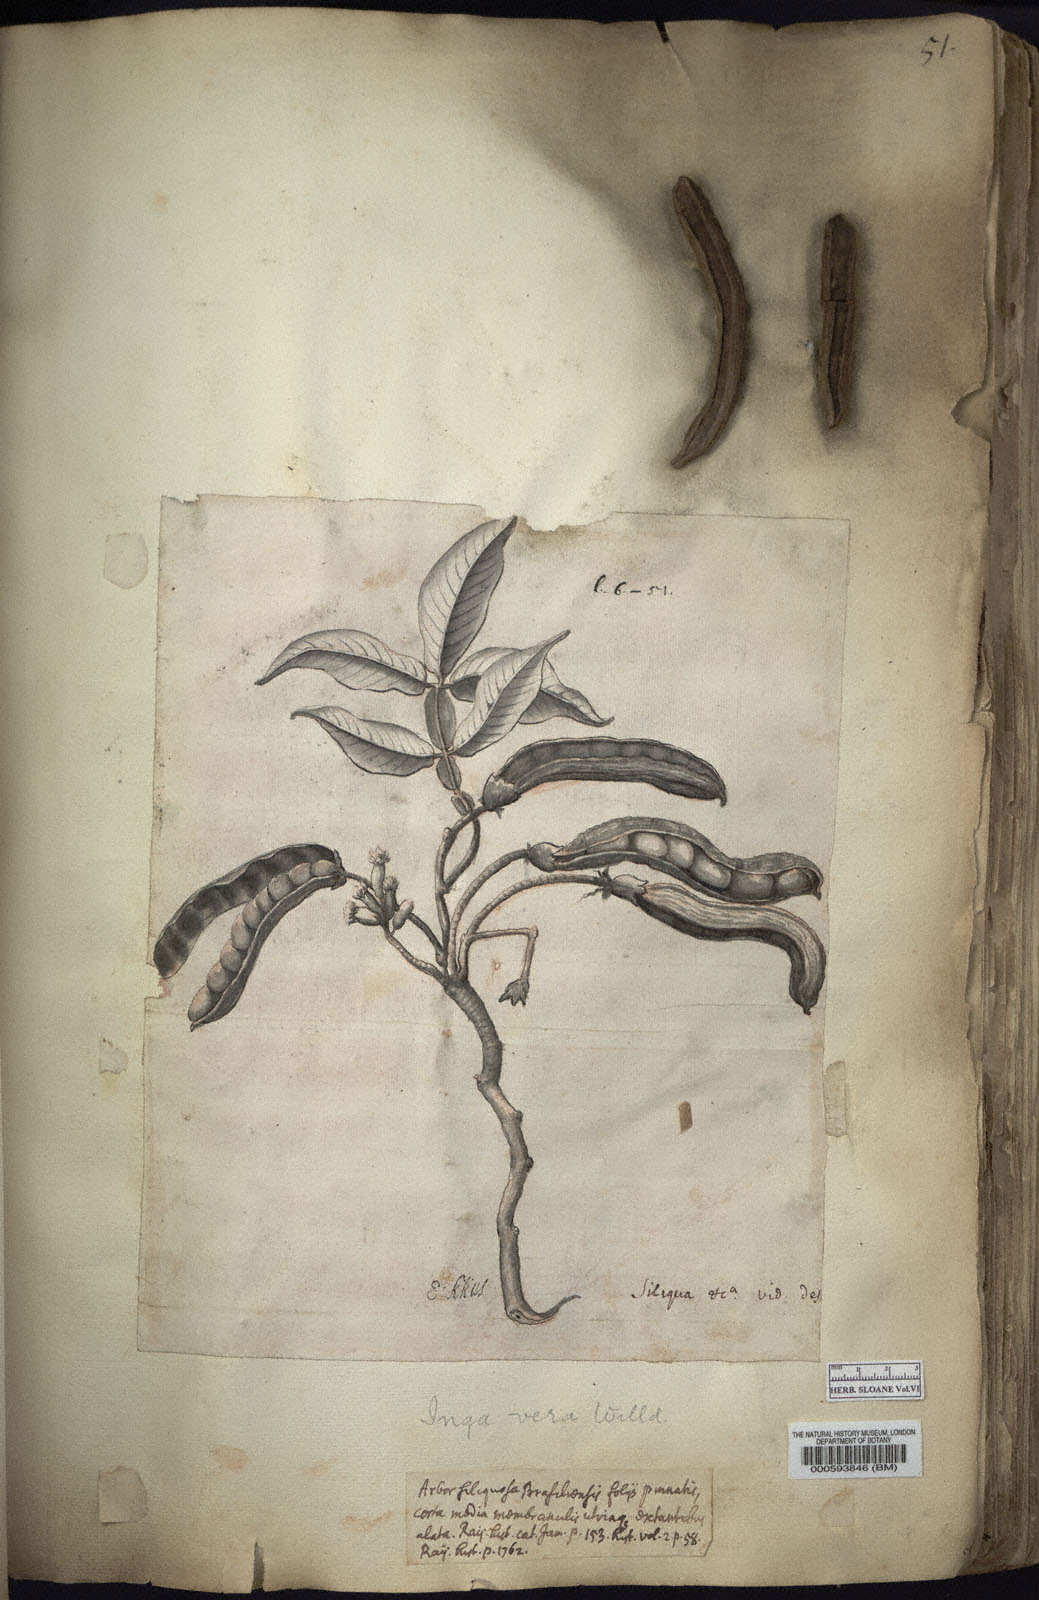 51.
l. 6. - 51.
Siliqua &ca. vid. des
HERB. SLOANE Vol.VI
Inga vera Willd.
THE NATURAL HISTORY MUSEUM, LONDON
DEPARTMENT OF BOTANY
000593846 (BM)
Arbor siliquosa Brasiliensis folijs pinnatis,
costa media membranulis utrinq extantibus
alata. Raij. hist. cat. Jam. p. 153. hist. vol. 2 p. 58.
Raij. hist. p. 1762.